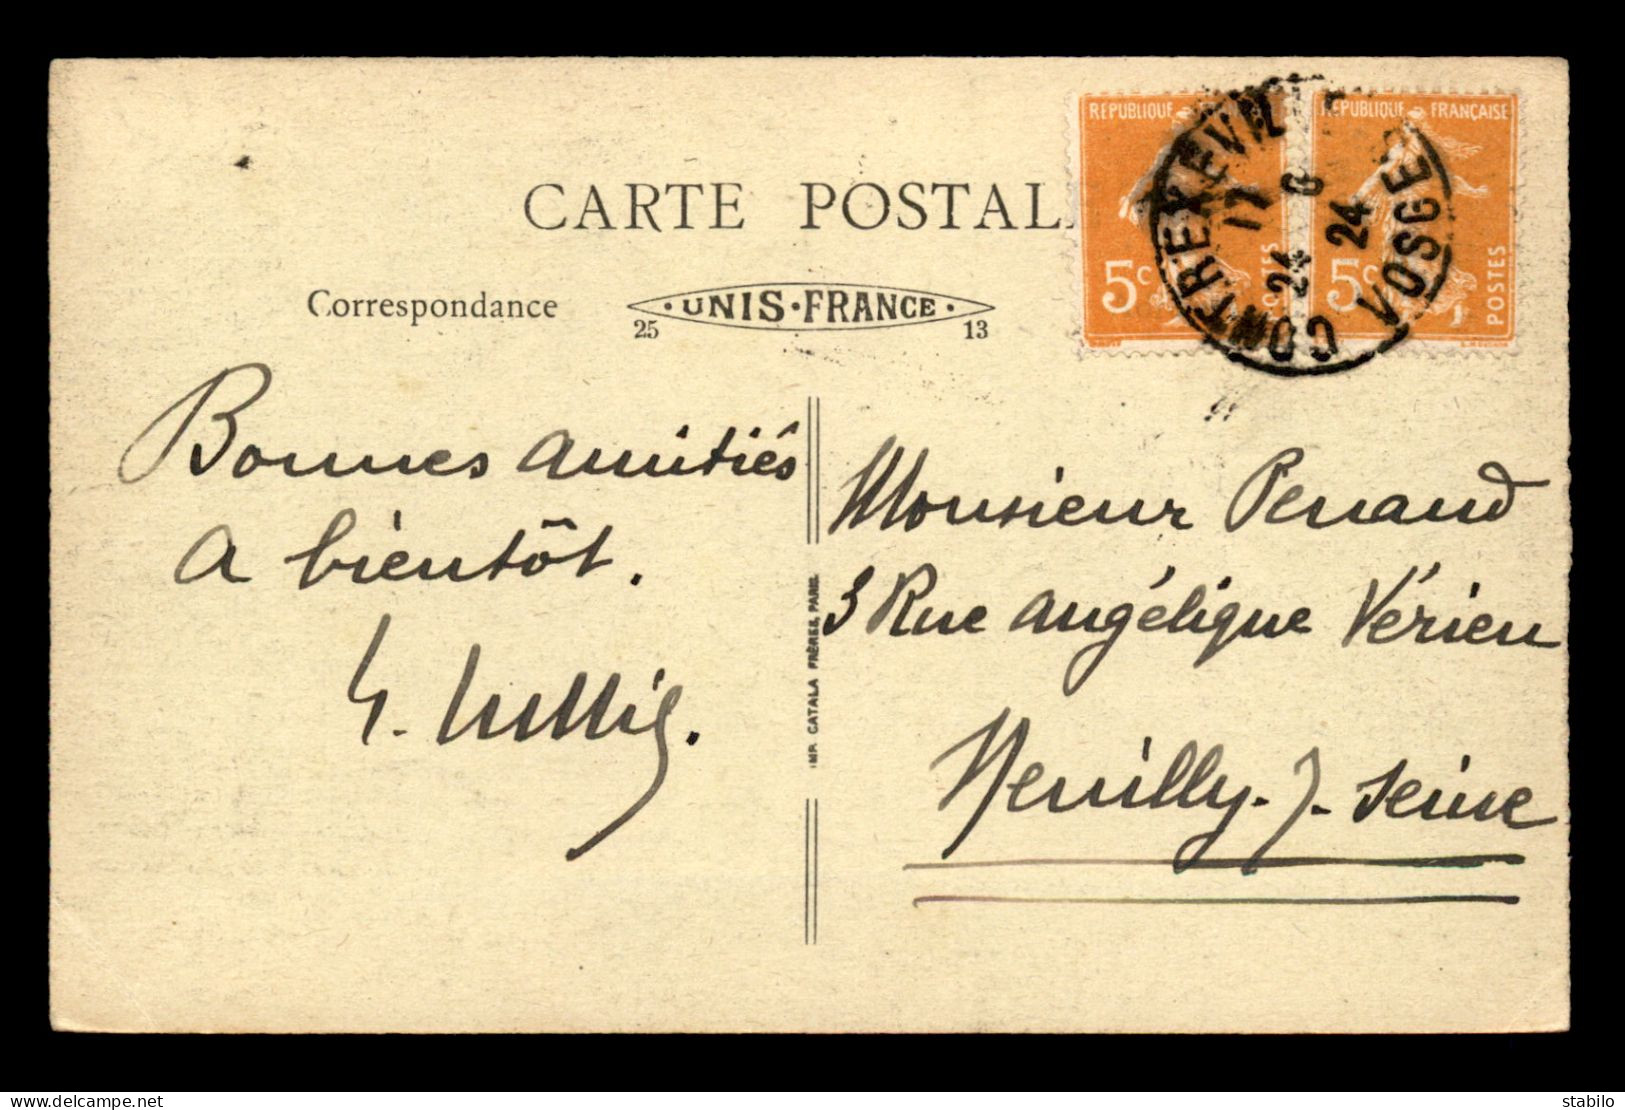 RÉPUBLIQUE
RÉPUBLIQUE FRANÇAISE
5c POSTES
5c POSTES
CONTREXEVIL
17 24 6 24
VOSGE
CARTE POSTAL
Correspondance
UNIS-FRANCE
25 13
Bonnes amitiés
a bientôt.
Monsieur
3 Rue Angélique Vérien
Neuilly-s-Seine
IMP. CATALA FRÈRES, PARIS.
www.delcampe.net
stabilo